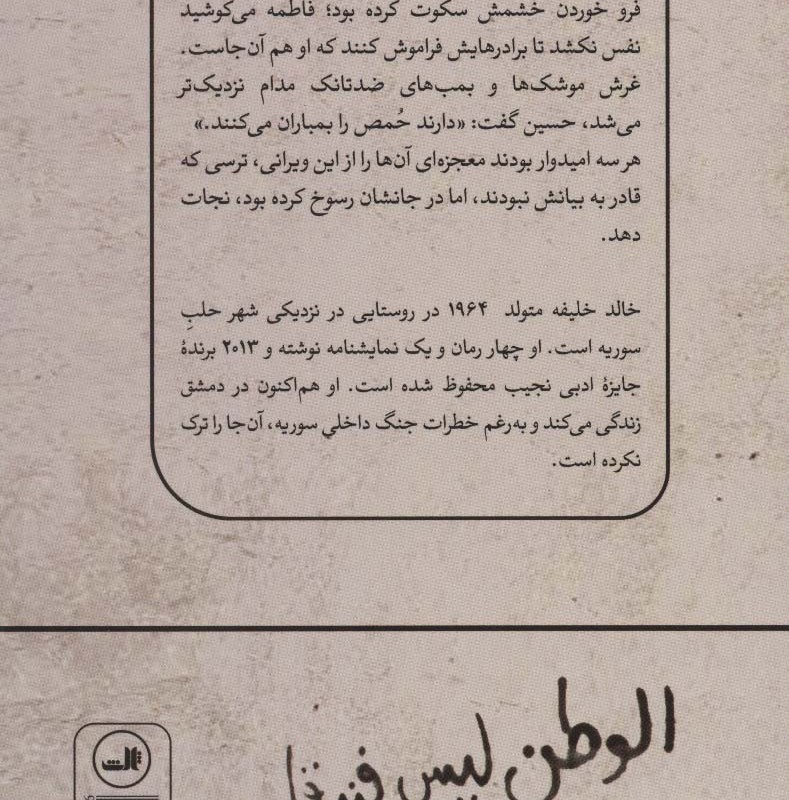 فرو خوردن خشمش سکوت کرده بود؛ فاطمه می‌کوشید
نفس نکشد تا برادرهایش فراموش کنند که او هم آن‌جاست.
غرش موشک‌ها و بمب‌های ضدتانک مدام نزدیک‌تر
می‌شد، حسین گفت: «دارند حُمص را بمباران می‌کنند.»
هر سه امیدوار بودند معجزه‌ای آن‌ها را از این ویرانی، ترسی که
قادر به بیانش نبودند، اما در جانشان رسوخ کرده بود، نجات
دهد.
خالد خلیفه متولد ۱۹۶۴ در روستایی در نزدیکی شهر حلبِ
سوریه است. او چهار رمان و یک نمایشنامه نوشته و ۲۰۱۳ برندهٔ
جایزهٔ ادبی نجیب محفوظ شده است. او هم‌اکنون در دمشق
زندگی می‌کند و به‌رغم خطرات جنگ داخلیِ سوریه، آن‌جا را ترک
نکرده است.
الوطن ليس
ثالث